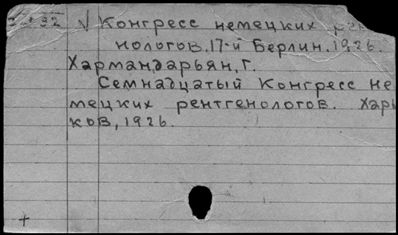 √ Конгресс немецких
нологов, 17-й Берлин. 1926.
Хармандарьян, Г.
Семнадцатый Конгресс не
мецких рентгенологов. Харь
ков, 1926.
+